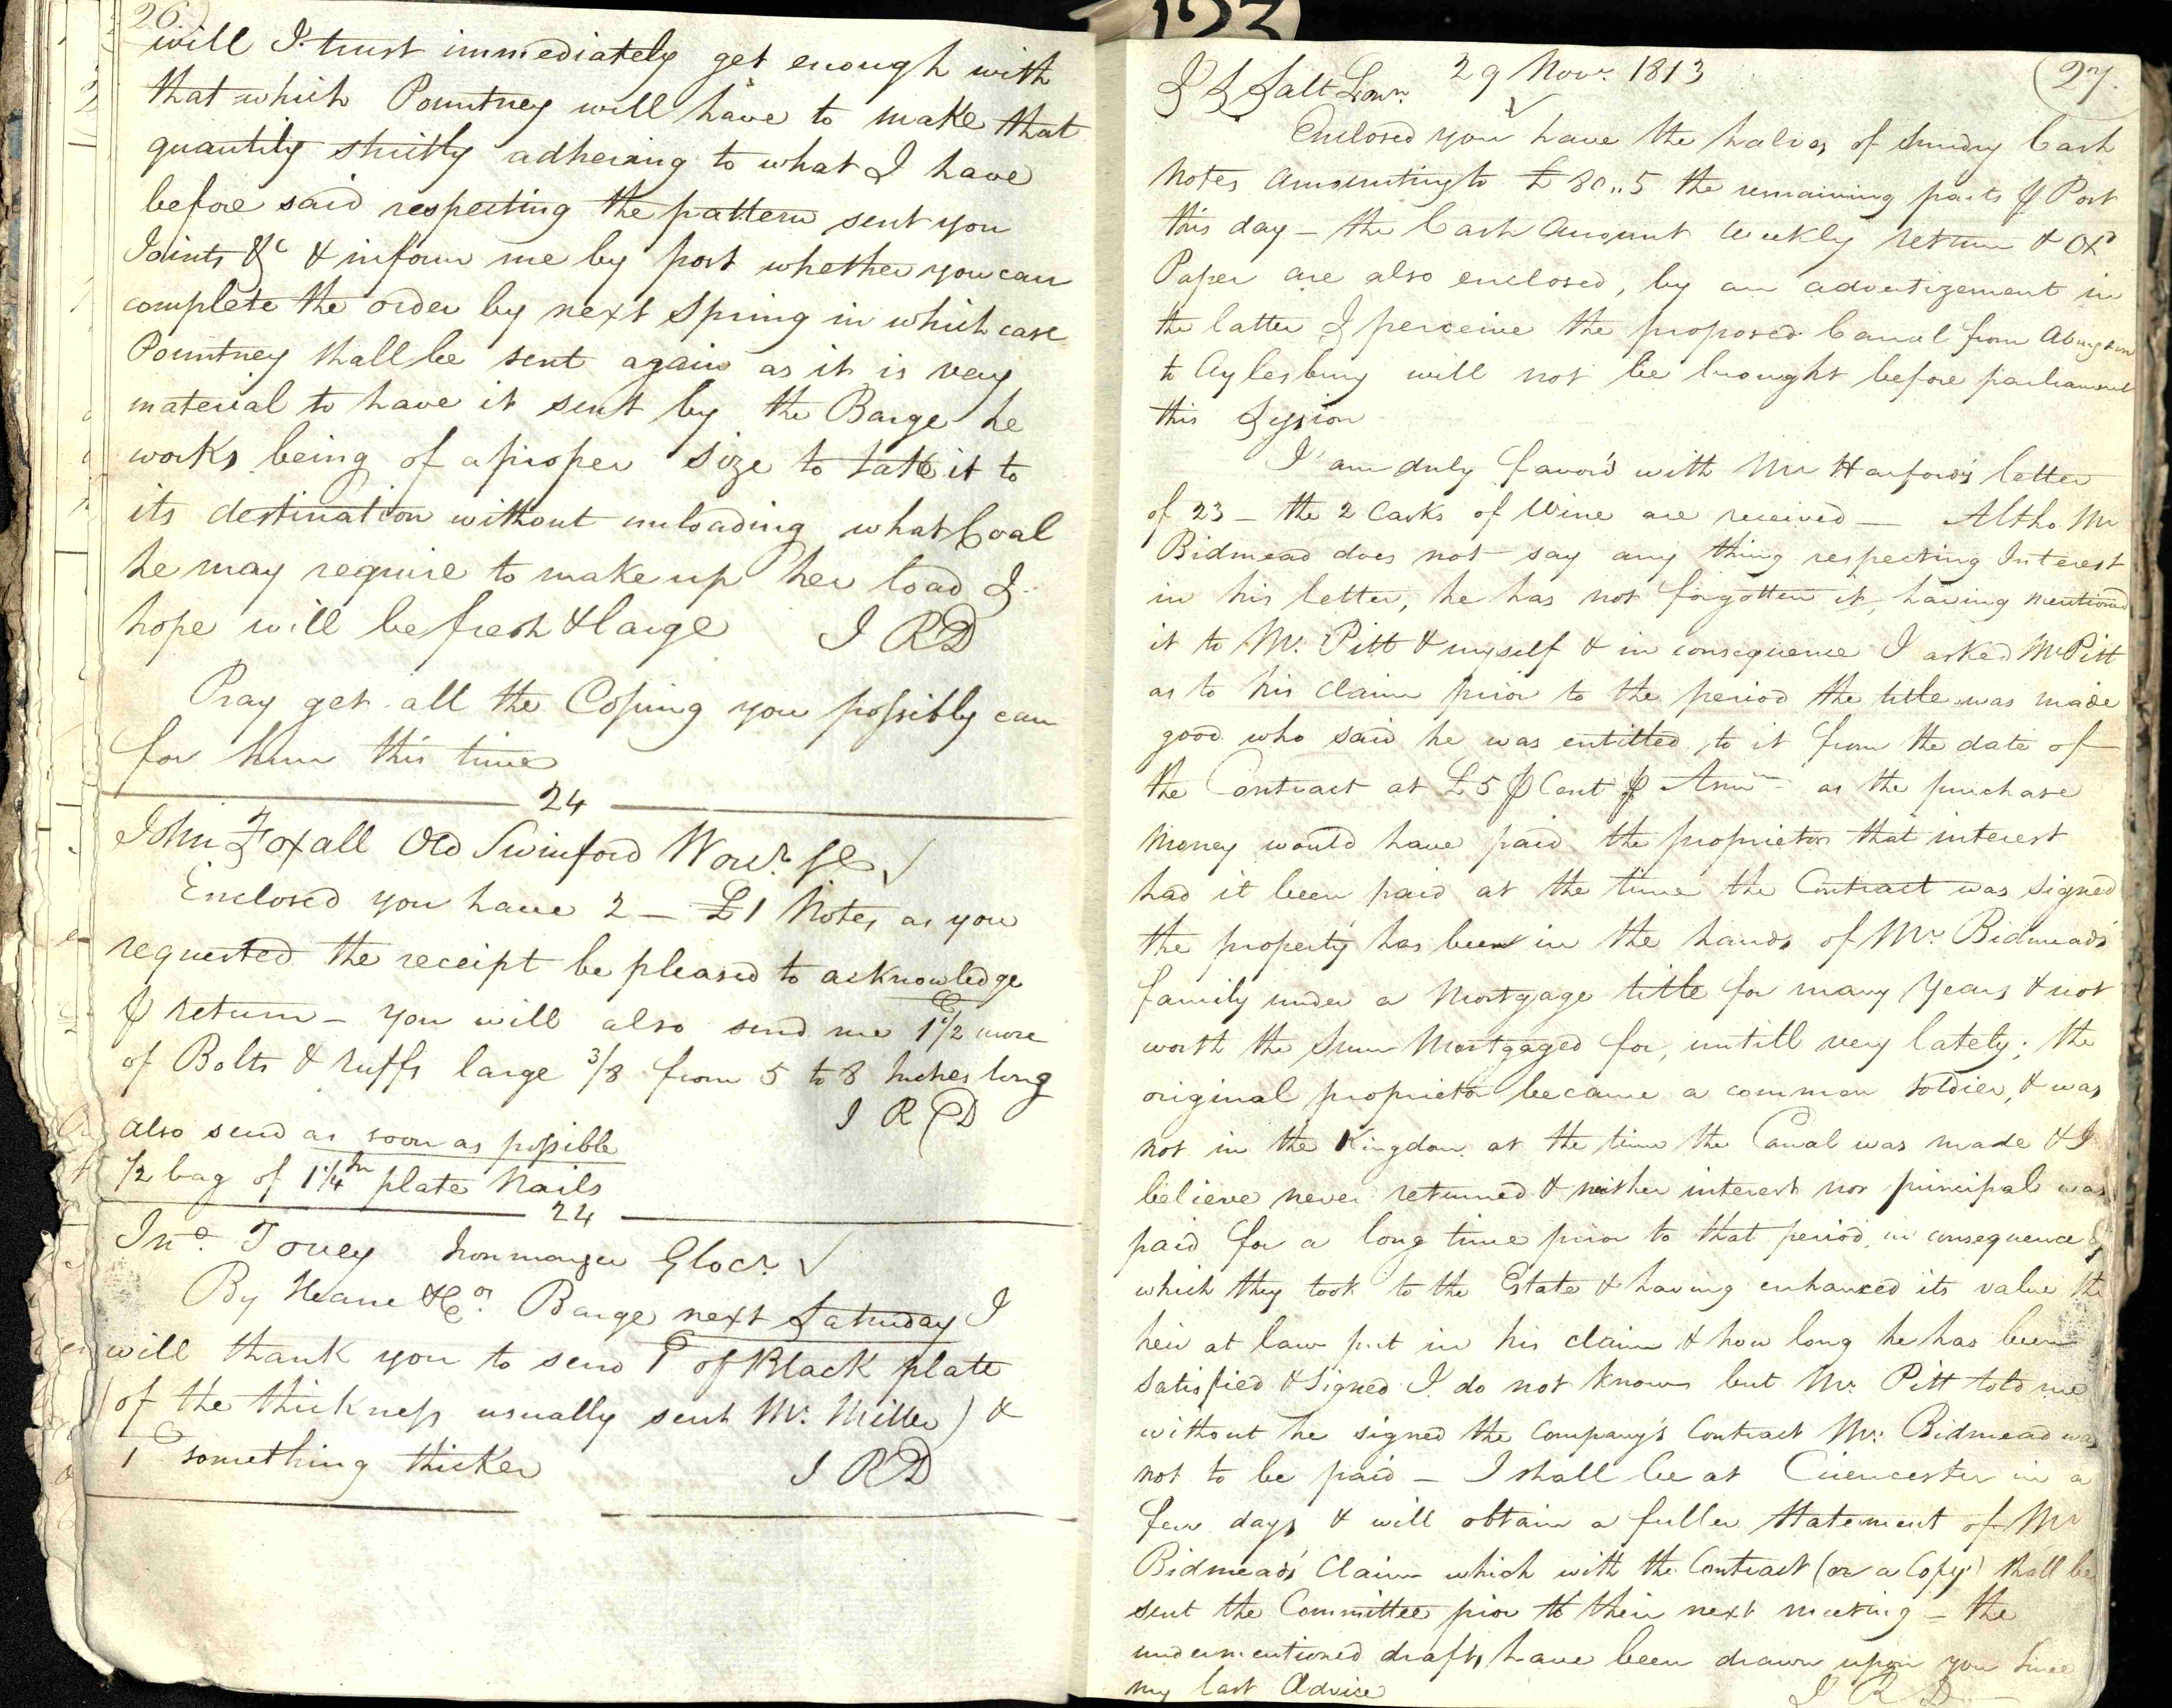 26.
will I trust immediately get enough with
that which Pountney will have to make that
quantity strictly adhering to what I have
before said respecting the pattern sent you
Joints &c & inform me by post whether you can
complete the order by next Spring in which case
Pountney shall be sent again as it is very
material to have it sent by the Barge he
works being of a proper size to take it to
its destination without unloading what Coal
he may require to make up her load I
hope will be fresh & large I R D
Pray get all the Coping you possibly can
for him this time
24
John Foxall Old Swinford Worr. ✓
Enclosed you have 2 - £1 Notes as you
requested the receipt be pleased to acknowledge
⅌ return - you will also send me 1 1/2 C more
of Bolts & ruffs large 3/8 from 5 to 8 Inches long
I R D
also send as soon as possible
1/2 bag of 1 1/4 In plate Nails
24
Jno. Tovey Ironmonger Glocr. ✓
By Heane & Co. Barge next Saturday I
will thank you to send 1 C of Black plate
(of the thickness usually sent Mr. Miller) &
1 C something thicker I R D
123
27.
J L Salt Lonn. 29 Novr. 1813
Enclosed you have the halves of Sundry Cash
Notes amounting to £80..5 the remaining parts ⅌ Post
this day - the Cash Account Weekly return & Oxd
Paper are also enclosed, by an advertizement in
the latter I perceive the proposed Canal from Abingdon
to Aylesbury will not be brought before parliament
this Session
I am duly favord with Mr Harfords letter
of 23 - the 2 Casks of Wine are received - Altho Mr
Bidmead does not say any thing respecting Interest
in his letter, he has not forgotten it, having mentiond
it to Mr. Pitt & myself & in consequence I asked Mr Pitt
as to his claim prior to the period the title was made
good who said he was entitled to it from the date of
the Contract at £5 ⅌ Cent ⅌ Annm as the purchase
Money would have paid the proprietor that interest
had it been paid at the time the Contract was signed
the property has been in the hands of Mr Bidmeads
family under a Mortgage title for many Years & not
worth the Sum Mortgaged for, untill very lately; the
original proprietor became a common soldier, & was
not in the Kingdom at the time the Canal was made & I
believe never returned & neither interest nor principal was
paid for a long time prior to that period, in consequence of
which they took to the Estate & having enhanced its value the
heir at law put in his claim & how long he has been
satisfied & signed I do not know but Mr. Pitt told me
without he signed the Company's Contract Mr. Bidmead was
not to be paid - I shall be at Cirencester in a
few days & will obtain a fuller statement of Mr
Bidmeads' Claim which with the Contract (or a Copy) shall be
sent the Committee prior to their next meeting - the
undermentioned drafts have been drawn upon you since
my last Advice I R D